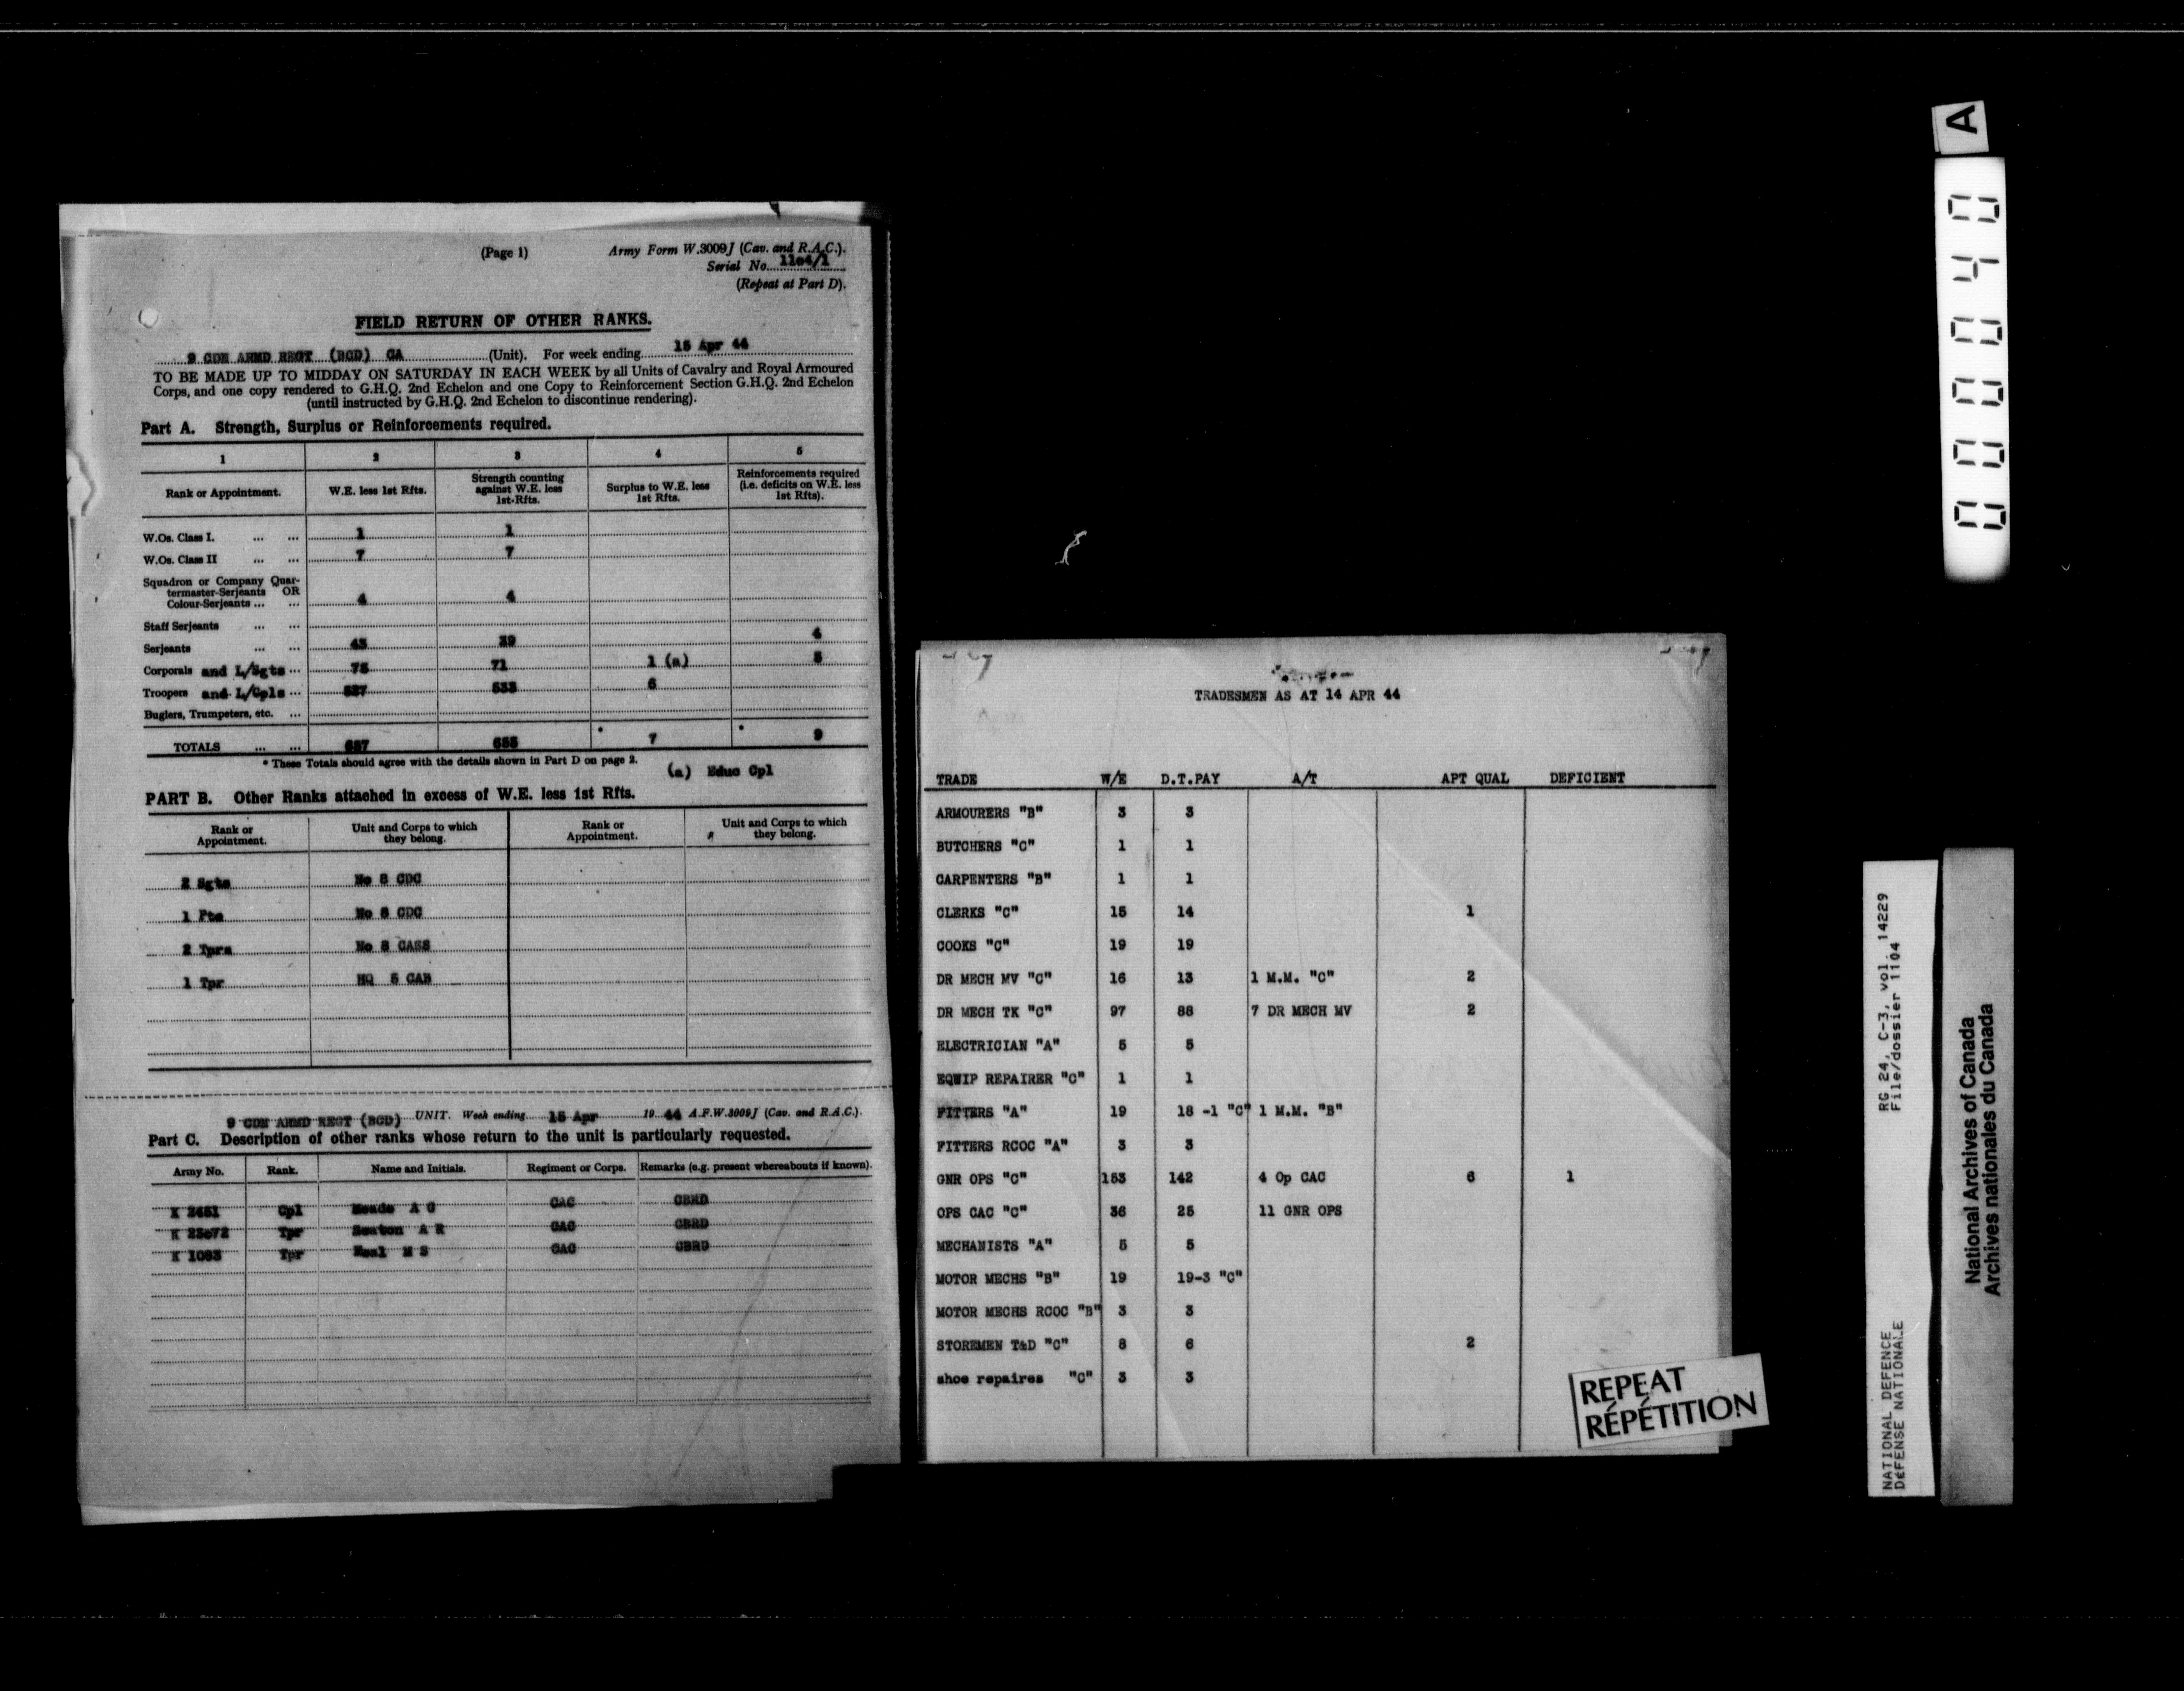 (Page 1)
Army Form W.3009J (Cav. and R.A.C.).
Serial No. 11o4/1
(Repeat at Part D).
FIELD RETURN OF OTHER RANKS.
9 CDN ARMD REGT (BCD) CA (Unit). For week ending 15 Apr 44
TO BE MADE UP TO MIDDAY ON SATURDAY IN EACH WEEK by all Units of Cavalry and Royal Armoured
Corps, and one copy rendered to G.H.Q. 2nd Echelon and one Copy to Reinforcement Section G.H.Q. 2nd Echelon
(until instructed by G.H.Q. 2nd Echelon to discontinue rendering).
Part A. Strength, Surplus or Reinforcements required.
1 2 3 4 5
Rank or Appointment. W.E. less 1st Rfts. Strength counting against W.E. less 1st-Rfts. Surplus to W.E. less 1st Rfts. Reinforcements required (i.e. deficits on W.E. less 1st Rfts).
W.Os. Class I. ... ... 1 1
W.Os. Class II ... ... 7 7
Squadron or Company Quar-
termaster-Serjeants OR
Colour-Serjeants ... ... 4 4
Staff Serjeants ... ...
Serjeants ... ... 43 39 4
Corporals and L/Sgts ... 75 71 1 (a) 5
Troopers and L/Cpls ... 527 533 6
Buglers, Trumpeters, etc. ...
TOTALS ... ... 657 655 * 7 * 9
* These Totals should agree with the details shown in Part D on page 2.
(a) Educ Cpl
PART B. Other Ranks attached in excess of W.E. less 1st Rfts.
Rank or Appointment. Unit and Corps to which they belong. Rank or Appointment. Unit and Corps to which they belong.
2 Sgts No 8 CDC
1 Pte No 8 CDC
2 Tprs No 8 CASS
1 Tpr HQ 5 CAB
9 CDN ARMD REGT (BCD) UNIT. Week ending 15 Apr 19 44 A.F.W.3009J (Cav. and R.A.C.).
Part C. Description of other ranks whose return to the unit is particularly requested.
Army No. Rank. Name and Initials. Regiment or Corps. Remarks (e.g. present whereabouts if known).
Cpl Meade A G CAC CBRD
Tpr Seaton A R CAC CBRD
K 1083 Tpr Neal M S CAC CBRD
TRADESMEN AS AT 14 APR 44
TRADE W/E D.T.PAY A/T APT QUAL DEFICIENT
ARMOURERS "B" 3 3
BUTCHERS "C" 1 1
CARPENTERS "B" 1 1
CLERKS "C" 15 14 1
COOKS "C" 19 19
DR MECH MV "C" 16 13 1 M.M. "C" 2
DR MECH TK "C" 97 88 7 DR MECH MV 2
ELECTRICIAN "A" 5 5
EQWIP REPAIRER "C" 1 1
FITTERS "A" 19 18 -1 "C" 1 M.M. "B"
FITTERS RCOC "A" 3 3
GNR OPS "C" 153 142 4 Op CAC 6 1
OPS CAC "C" 36 25 11 GNR OPS
MECHANISTS "A" 5 5
MOTOR MECHS "B" 19 19-3 "C"
MOTOR MECHS RCOC "B" 3 3
STOREMEN T&D "C" 8 6 2
shoe repaires "C" 3 3
REPEAT
RÉPÉTITION
A
000040
RG 24, C-3, vol. 14229
File/dossier 1104
NATIONAL DEFENCE
DÉFENSE NATIONALE
National Archives of Canada
Archives nationales du Canada